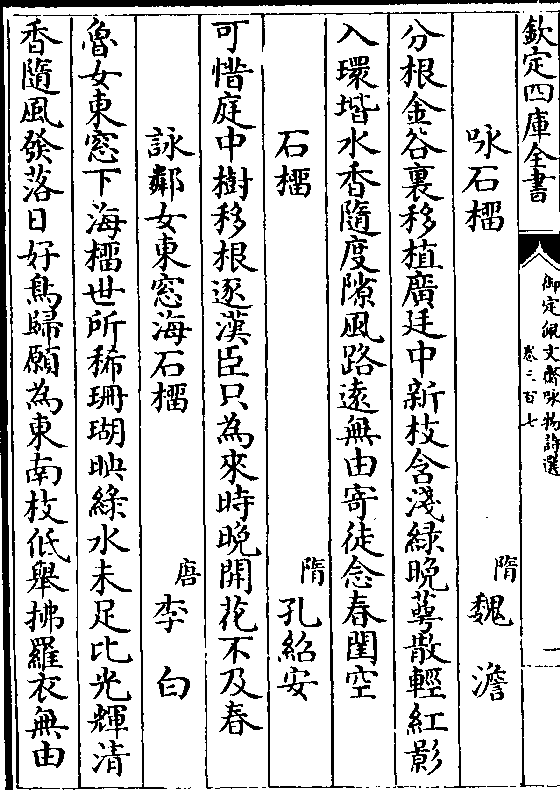 欽定四庫全書
御定佩文齋咏物詩選
卷三百七
一
咏石橊
隋
魏澹
分根金谷裏移植廣廷中新枝含淺緑晚萼散輕紅影
入環堦水香隨度隙風路遠無由寄徒念春閨空
石橊
隋
孔紹安
可惜庭中樹移根逐漢臣只為來時晚開花不及春
詠鄰女東窓海石橊
唐
李白
魯女東窓下海橊世所稀珊瑚映緑水未足比光輝清
香隨風發落日好鳥歸願為東南枝低舉拂羅衣無由